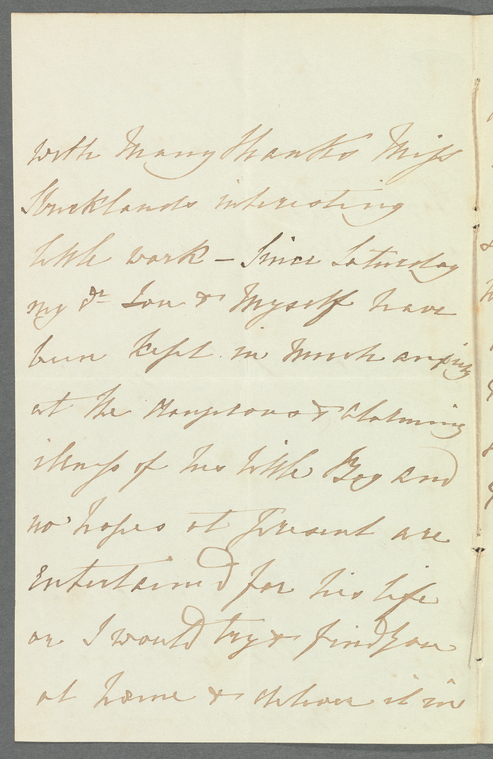 with Many thanks Miss
Stricklands interesting
little work – Since Saturday
my dr Son & Myself have
been kept in much anxiety
at the dangerous & alarming
illness of his little Boy and
no hopes at present are
Entertained for his life
or I would try & find you
at home & deliver it in